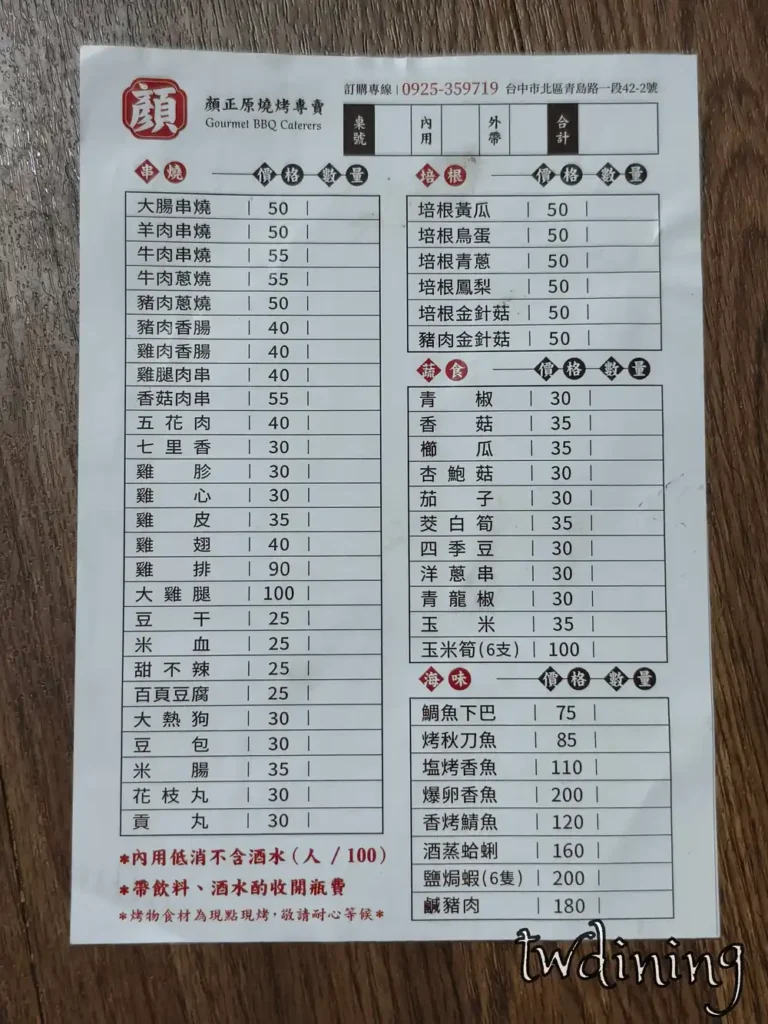 顏
顏正原燒烤專賣
Gourmet BBQ Caterers
訂購專線 | 0925-359719 台中市北區青島路一段42-2號
桌號 內用 外帶 合計
串燒 價格 數量
大腸串燒 | 50 |
羊肉串燒 | 50 |
牛肉串燒 | 55 |
牛肉蔥燒 | 55 |
豬肉蔥燒 | 50 |
豬肉香腸 | 40 |
雞肉香腸 | 40 |
雞腿肉串 | 40 |
香菇肉串 | 55 |
五花肉 | 40 |
七里香 | 30 |
雞胗 | 30 |
雞心 | 30 |
雞皮 | 35 |
雞翅 | 40 |
雞排 | 90 |
大雞腿 | 100 |
豆干 | 25 |
米血 | 25 |
甜不辣 | 25 |
百頁豆腐 | 25 |
大熱狗 | 30 |
豆包 | 30 |
米腸 | 35 |
花枝丸 | 30 |
貢丸 | 30 |
*內用低消不含酒水(人 / 100)
*帶飲料、酒水酌收開瓶費
*烤物食材為現點現烤,敬請耐心等候*
培根 價格 數量
培根黃瓜 | 50 |
培根鳥蛋 | 50 |
培根青蔥 | 50 |
培根鳳梨 | 50 |
培根金針菇 | 50 |
豬肉金針菇 | 50 |
蔬食 價格 數量
青椒 | 30 |
香菇 | 35 |
櫛瓜 | 35 |
杏鮑菇 | 30 |
茄子 | 30 |
茭白筍 | 35 |
四季豆 | 30 |
洋蔥串 | 30 |
青龍椒 | 30 |
玉米 | 35 |
玉米筍(6支) | 100 |
海味 價格 數量
鯛魚下巴 | 75 |
烤秋刀魚 | 85 |
塩烤香魚 | 110 |
爆卵香魚 | 200 |
香烤鯖魚 | 120 |
酒蒸蛤蜊 | 160 |
鹽焗蝦(6隻) | 200 |
鹹豬肉 | 180 |
twdining